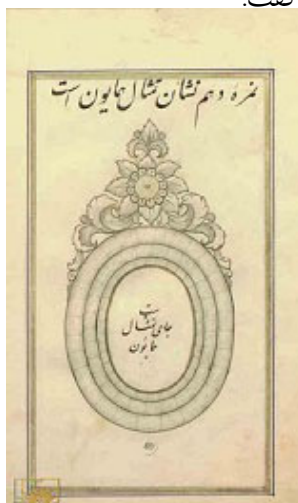 گفت:
نمرهٔ دهم نشان تمثال همایون است
جای تمثال
همایون
است